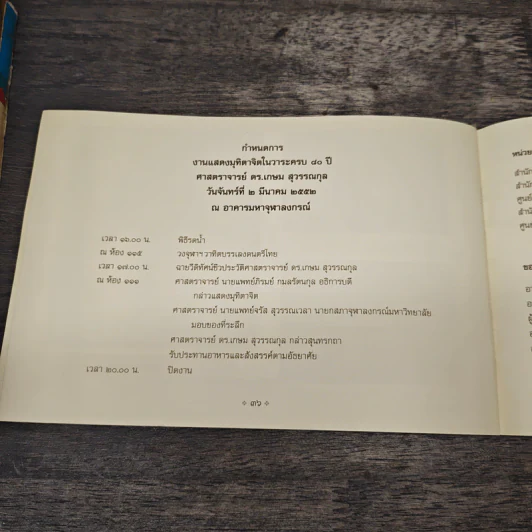 กำหนดการ
งานแสดงมุทิตาจิตในวาระครบ ๘๐ ปี
ศาสตราจารย์ ดร.เกษม สุวรรณกุล
วันจันทร์ที่ ๒ มีนาคม ๒๕๕๒
ณ อาคารมหาจุฬาลงกรณ์
เวลา ๑๖.๐๐ น. พิธีรดน้ำ
ณ ห้อง ๑๑๕ วงจุฬาฯวาทิตบรรเลงดนตรีไทย
เวลา ๑๗.๐๐ น. ฉายวีดิทัศน์ชีวประวัติศาสตราจารย์ ดร.เกษม สุวรรณกุล
ณ ห้อง ๑๑๑ ศาสตราจารย์ นายแพทย์ภิรมย์ กมลรัตนกุล อธิการบดี
กล่าวแสดงมุทิตาจิต
ศาสตราจารย์ นายแพทย์จรัส สุวรรณเวลา นายกสภาจุฬาลงกรณ์มหาวิทยาลัย
มอบของที่ระลึก
ศาสตราจารย์ ดร.เกษม สุวรรณกุล กล่าวสุนทรกถา
รับประทานอาหารและสังสรรค์ตามอัธยาศัย
เวลา ๒๐.๐๐ น. ปิดงาน
๓๖